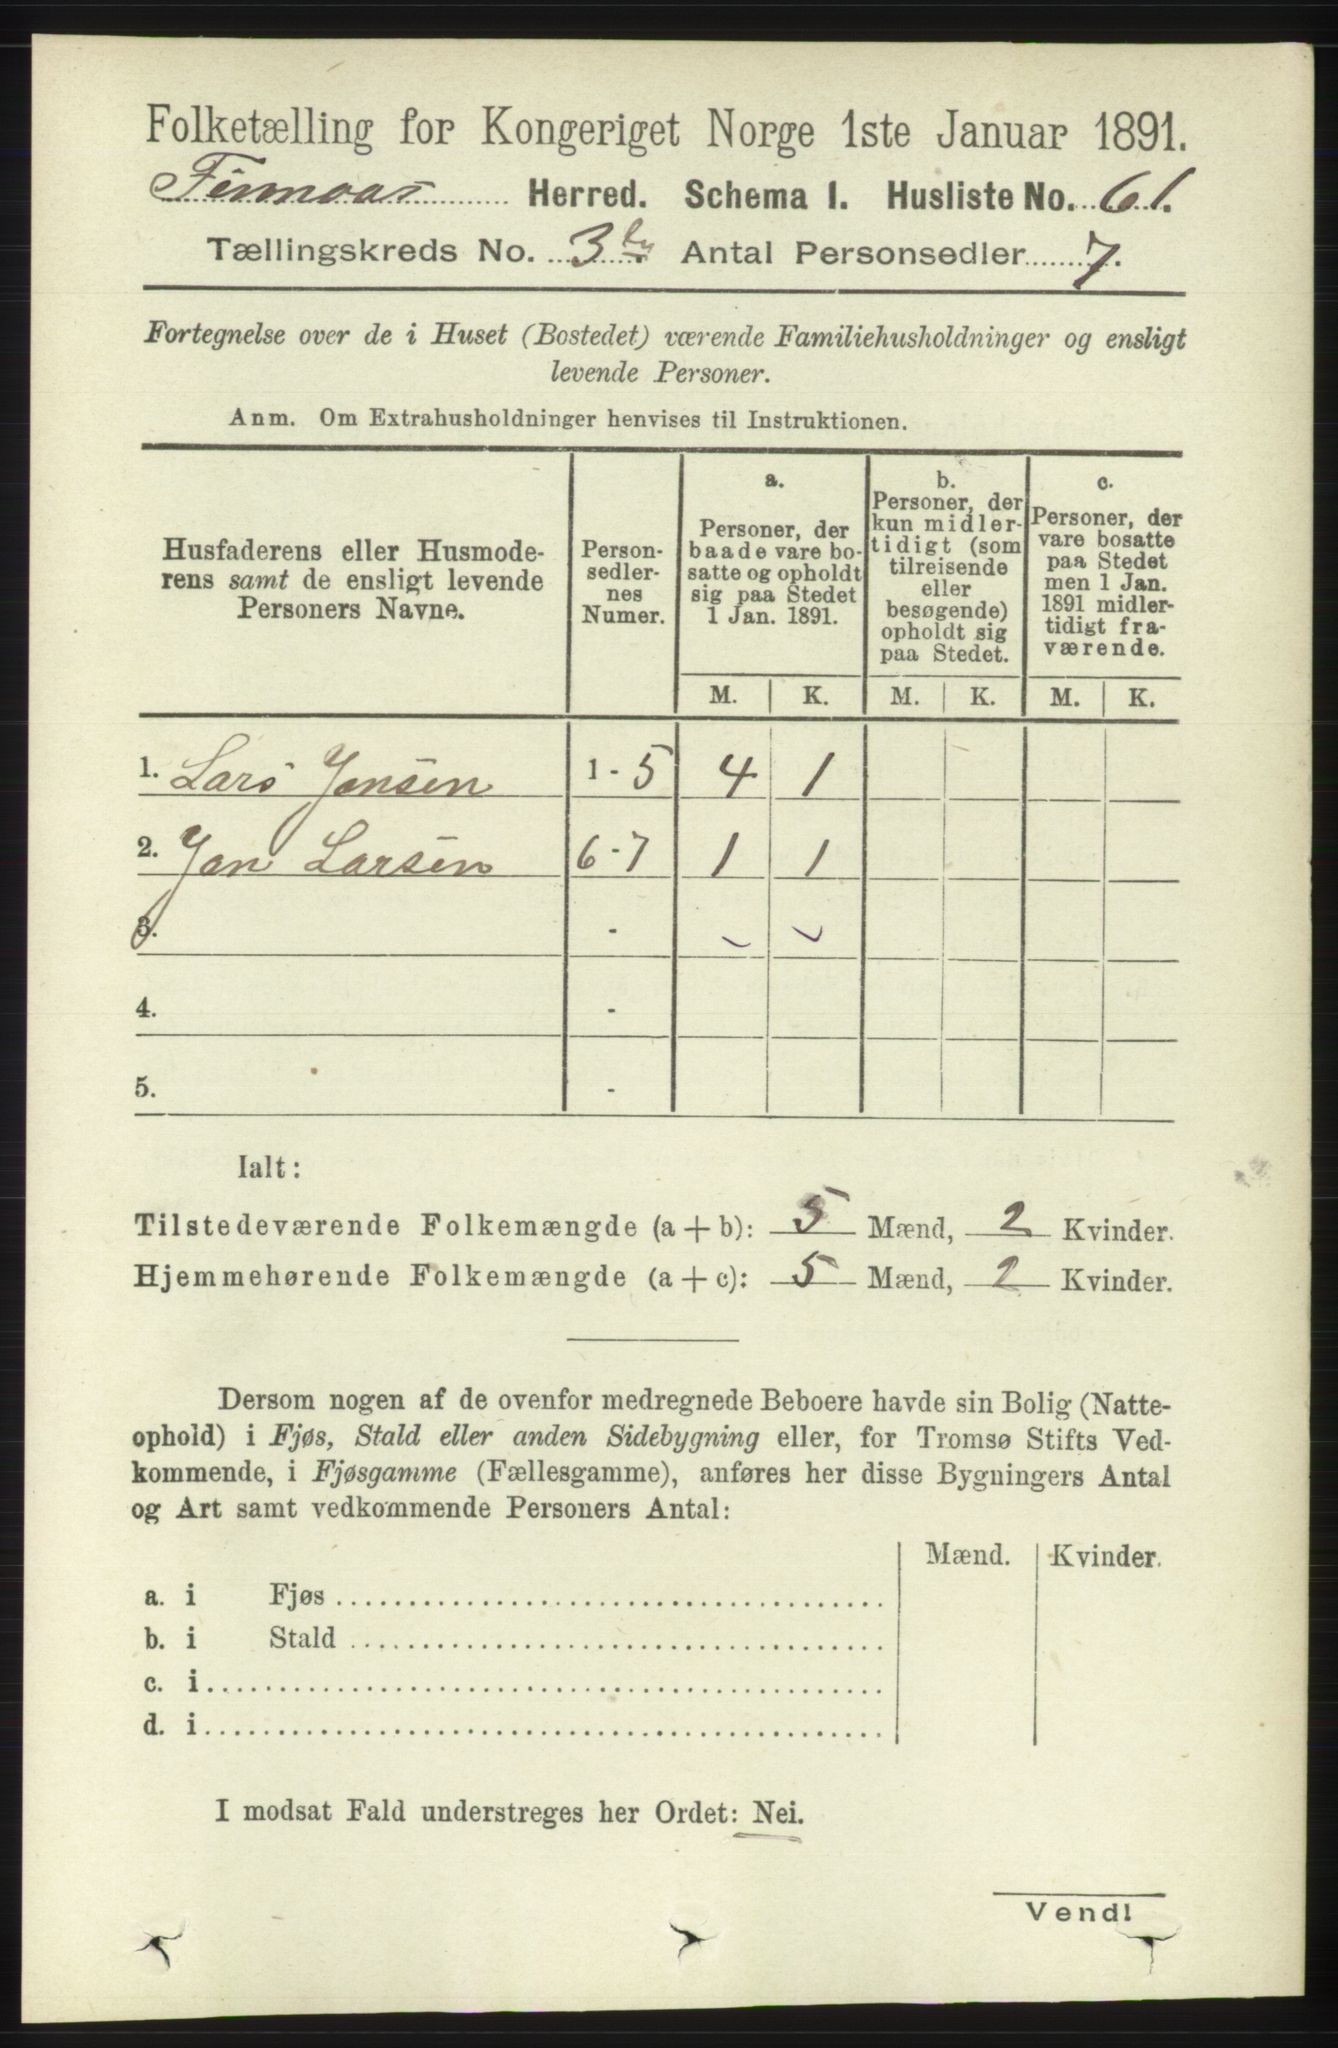 Folketælling for Kongeriget Norge 1ste Januar 1891.
Herred. Schema 1. Husliste No. 61.
Tællingskreds No. 3 Antal Personsedler 7.
Fortegnelse over de i Huset (Bostedet) værende Familiehusholdninger og ensligt
levende Personer.
Anm. Om Extrahusholdninger henvises til Instruktionen.
Husfaderens eller Husmode-
rens samt de ensligt levende
Personers Navne.
Person-
sedler-
nes
Numer.
a.
Personer, der
baade vare bo-
satte og opholdt
sig paa Stedet
1 Jan. 1891.
b.
Personer, der
kun midler-
tidigt (som
tilreisende
eller
besøgende)
opholdt sig
paa Stedet.
c.
Personer, der
vare bosatte
paa Stedet
men 1 Jan.
1891 midler-
tidigt fra-
værende.
M. K. M. K. M. K.
1. Lars Jonsen 1-5 4 1
2. Jon Larsen 6-7 1 1
3. -
4. -
5. -
Ialt:
Tilstedeværende Folkemængde (a + b): 5 Mænd, 2 Kvinder.
Hjemmehørende Folkemængde (a + c): 5 Mænd, 2 Kvinder.
Dersom nogen af de ovenfor medregnede Beboere havde sin Bolig (Natte-
ophold) i Fjøs, Stald eller anden Sidebygning eller, for Tromsø Stifts Ved-
kommende, i Fjøsgamme (Fællesgamme), anføres her disse Bygningers Antal
og Art samt vedkommende Personers Antal:
Mænd. Kvinder.
a. i Fjøs
b. i Stald
c. i
d. i
I modsat Fald understreges her Ordet: Nei.
Vend!